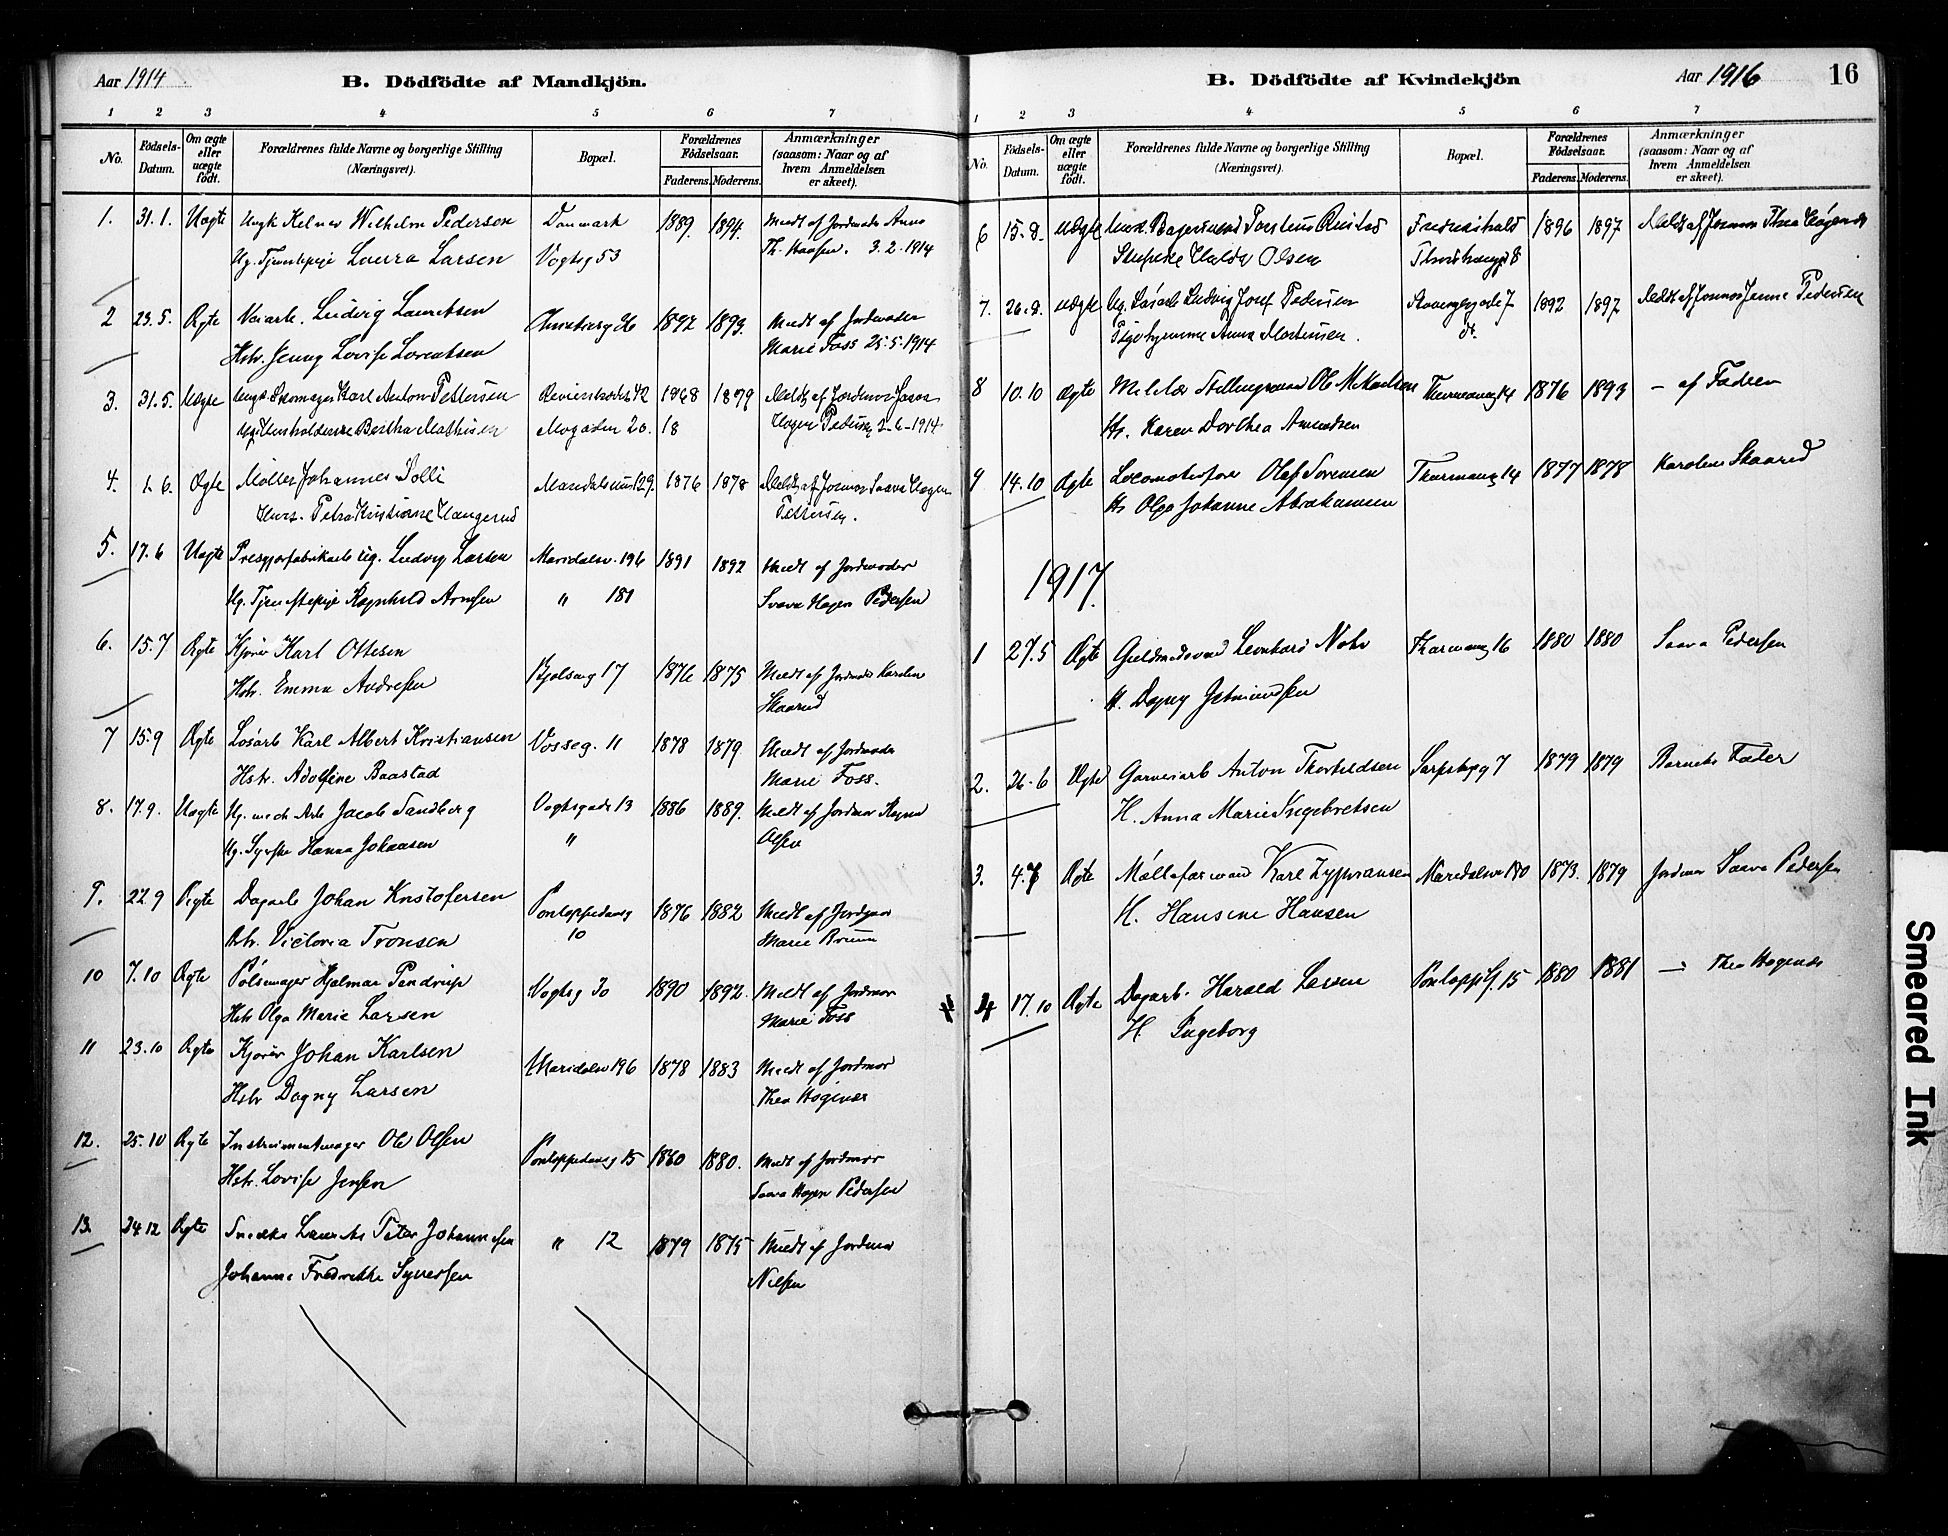 Aar 1914
B. Dödfödte af Mandkjön.
1 2 3 4 5 6 7
No.
Födsels-Datum.
Om ægte eller uægte födt.
Forældrenes fulde Navne og borgerlige Stilling (Næringsvet).
Bopæl.
Forældrenes Födselsaar.
Faderens. Moderens.
Anmærkninger (saasom: Naar og af hvem Anmeldelsen er skeet).
1. 31.1. Uægte Ungk. Kelner Wilhelm Pedersen Danmark 1889 1894 Meldt af Jordmoder Anna
Ug. Tjenestepige Laura Larsen Vogtsg 53 3.2.1914
2 23.5. Ægte Ludvig Lauritsen 26 1892 1893 Meldt af Jordmoder
Hstr. Jenny Lovise Lorentsen Marie Foss 25.5.1914
3. 31.5. Uægte Ungk. Skomager Karl Anton Pettersen 42 1868 1879 Meldt af Jordmor
Ug. Husholderske Bertha Mathisen 20. 18 Hagen Pedersen 2-6-1914
4. 1.6. Ægte Møller Johannes Solli 129. 1876 1878 Meldt af Jormor Saava Hagen
Hust. Petra Kristiane Haugerud Pettersen.
5. 17.6 Uægte Ludvig Larsen Maridalsv. 196 1891 1892 Meldt af Jordmoder
Ug. Tjenestepige Ragnhild Arnesen " 181 Saava Hagen Pedersen
6. 15.7 Ægte Kjører Karl Ottesen
Hstr. Emma Andresen Bjølseng 17 1876 1875 Meldt af Jordmor Karoline
Skaarud
7 15.9 Ægte Løsarb Karl Albert Kristiansen Vosseg. 11 1878 1879 Meldt af Jordmoder
Hstr. Adolfine Baastad Marie Foss.
8. 17.9. Uægte Ug. mek Arb Jacob Sandberg Vogtsgade 13 1886 1889. Meldt af Jordmor Ragna
Ug. Syerske Hanna Johansen " Olsen
9. 22.9 Ægte Dagarb Johan Kristofersen Pontoppidansg 1876 1882 Meldt af Jordmor
Hstr. Victoria Tronsen 10 Marie Bruun
10 7.10 Ægte Pølsemager Hjalmar Vogtsg 30 1890 1892. Meldt af Jordmor
Hstr Olga Marie Larsen Marie Foss
11 23.10 Ægte Kjører Johan Karlsen Maridalsv 196 1878 1883 Meldt af Jordmor
Hstr Dagny Larsen Thea Høgenæs
12. 25.10 Ægte Instrumentmager Ole Olsen Pontoppidansg 15 1860 1880. Meldt af Jordmor
Hstr. Lovise Jensen Saava Hagen Pedersen
13. 24 12 Ægte Snedker Laurits Peter Johannesen " 12 1879 1875 Meldt af Jordmor
Johanne Fredrikke Syversen Nilsen
B. Dödfödte af Kvindekjön
Aar 1916
16
1 2 3 4 5 6 7
No.
Födsels-Datum.
Om ægte eller uægte födt.
Forældrenes fulde Navne og borgerlige Stilling (Næringsvet).
Bopæl.
Forældrenes Födselsaar.
Faderens. Moderens.
Anmærkninger (saasom: Naar og af hvem Anmeldelsen er skeet).
6 15.8. uægte Ungk. Bagersvend Torsten Fredrikshald 1896 1897 Meldt af Jormor Thea Høgenæs
Hulda Olsen 8
7. 26.8. uægte Ug. Løsarb. Ludvig Josef Pedersen Stavangergade 7 1892 1897 Meldt af Jormor Jenne Pedersen
Anna Mortensen. d.
8 10.10 Ægte Ole Mikaelsen 14 1876 1893 — af Faderen
Hs. Karen Dorthea Amundsen
9 14.10 Ægte Olaf Sørensen Thurmansg 14 1877 1878 Karoline Skaarud
Hs Olga Johanne Abrahamsen
1917.
1 27.5 Ægte Guldsmedsvend Leonhard Nohr Thurmansg 16 1880 1880 Saava Pedersen
H. Dagny
2. 26.6 Ægte Garveriarb Anton Thorkildsen Sarpsbgg 7 1879 1879 Barnets Fader
H. Anna Marie Ingebretsen
3. 4.7 Ægte Mølleformand Karl Zypriansen Maridalsv 180 1873. 1879 Jordmor Saava Pedersen
H. Hansine Hansen
4 17.10 Ægte Dagarb. Harald Larsen 15 1880 1881 — Thea Høgenæs
H Ingeborg
Smeared Ink